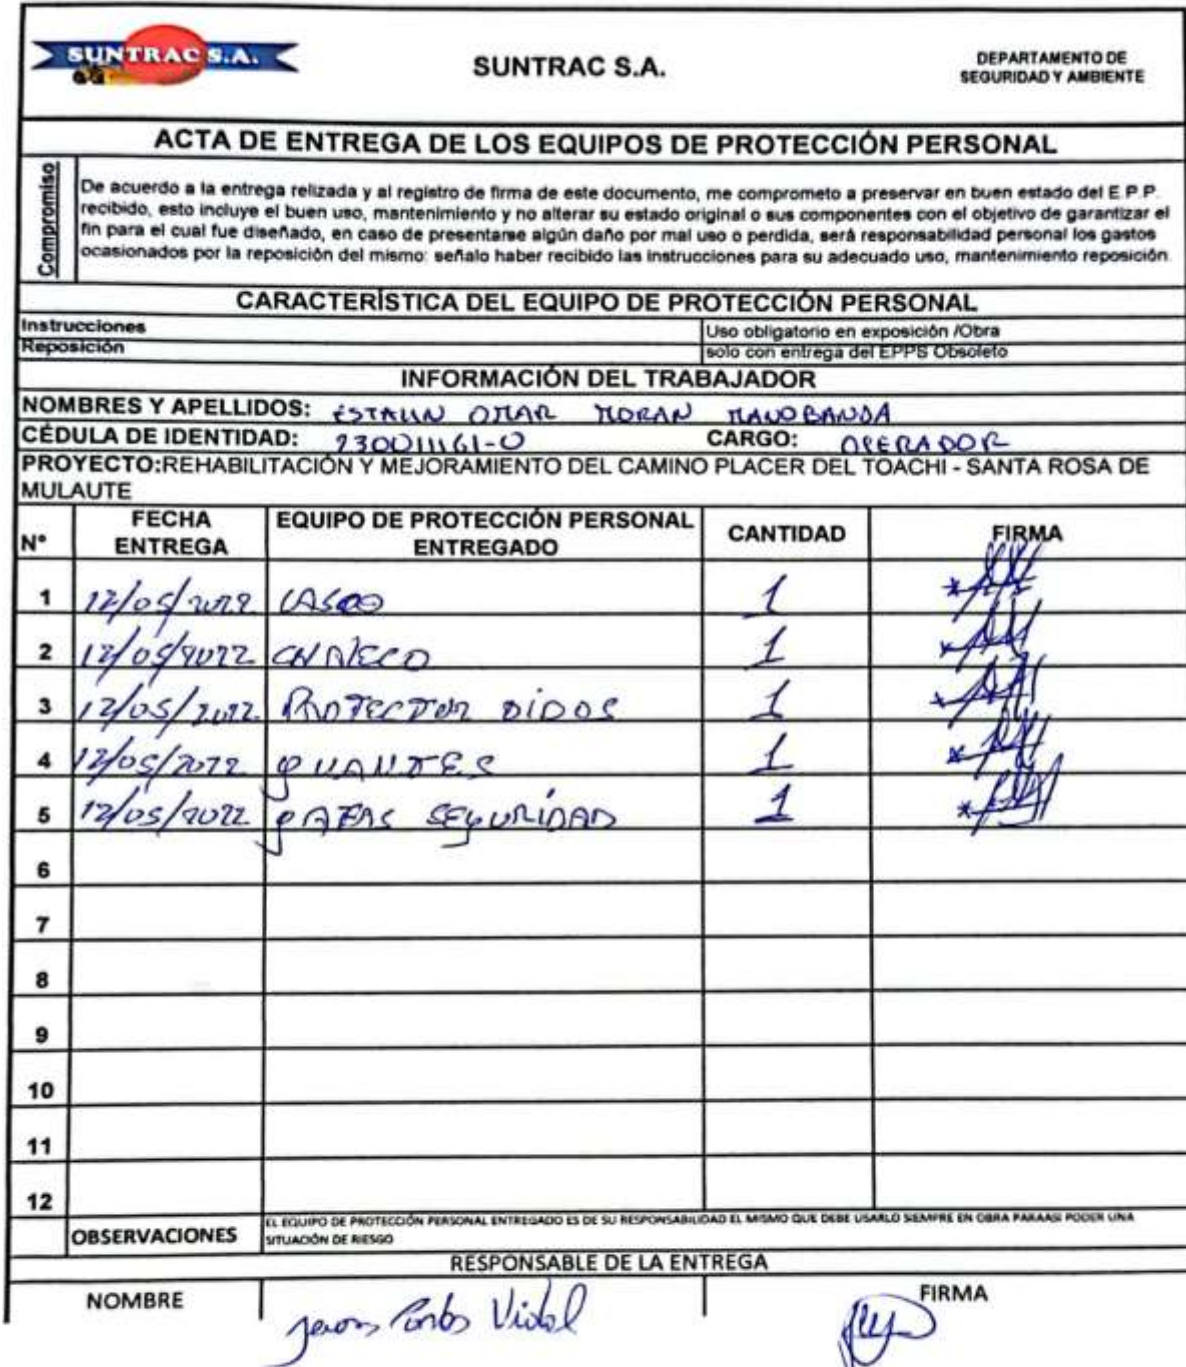 SUNTRAC S.A.
SUNTRAC S.A.
DEPARTAMENTO DE
SEGURIDAD Y AMBIENTE
ACTA DE ENTREGA DE LOS EQUIPOS DE PROTECCIÓN PERSONAL
Compromiso
De acuerdo a la entrega relizada y al registro de firma de este documento, me comprometo a preservar en buen estado del E.P.P.
recibido, esto incluye el buen uso, mantenimiento y no alterar su estado original o sus componentes con el objetivo de garantizar el
fin para el cual fue diseñado, en caso de presentarse algún daño por mal uso o perdida, será responsabilidad personal los gastos
ocasionados por la reposición del mismo: señalo haber recibido las instrucciones para su adecuado uso, mantenimiento reposición.
CARACTERÍSTICA DEL EQUIPO DE PROTECCIÓN PERSONAL
Instrucciones Uso obligatorio en exposición /Obra
Reposición solo con entrega del EPPS Obsoleto
INFORMACIÓN DEL TRABAJADOR
NOMBRES Y APELLIDOS: ESTALIN OMAR MORAN MANOBANDA
CÉDULA DE IDENTIDAD: 230011161-0 CARGO: OPERADOR
PROYECTO:REHABILITACIÓN Y MEJORAMIENTO DEL CAMINO PLACER DEL TOACHI - SANTA ROSA DE
MULAUTE
N° FECHA ENTREGA EQUIPO DE PROTECCIÓN PERSONAL ENTREGADO CANTIDAD FIRMA
1 12/05/2022 CASCO 1
2 12/05/2022 CHALECO 1
3 12/05/2022 PROTECTOR OIDOS 1
4 12/05/2022 GUANTES 1
5 12/05/2022 GAFAS SEGURIDAD 1
6
7
8
9
10
11
12
OBSERVACIONES EL EQUIPO DE PROTECCIÓN PERSONAL ENTREGADO ES DE SU RESPONSABILIDAD EL MISMO QUE DEBE USARLO SIEMPRE EN OBRA PARAASI PODER UNA
SITUACIÓN DE RIESGO
RESPONSABLE DE LA ENTREGA
NOMBRE Vidal FIRMA